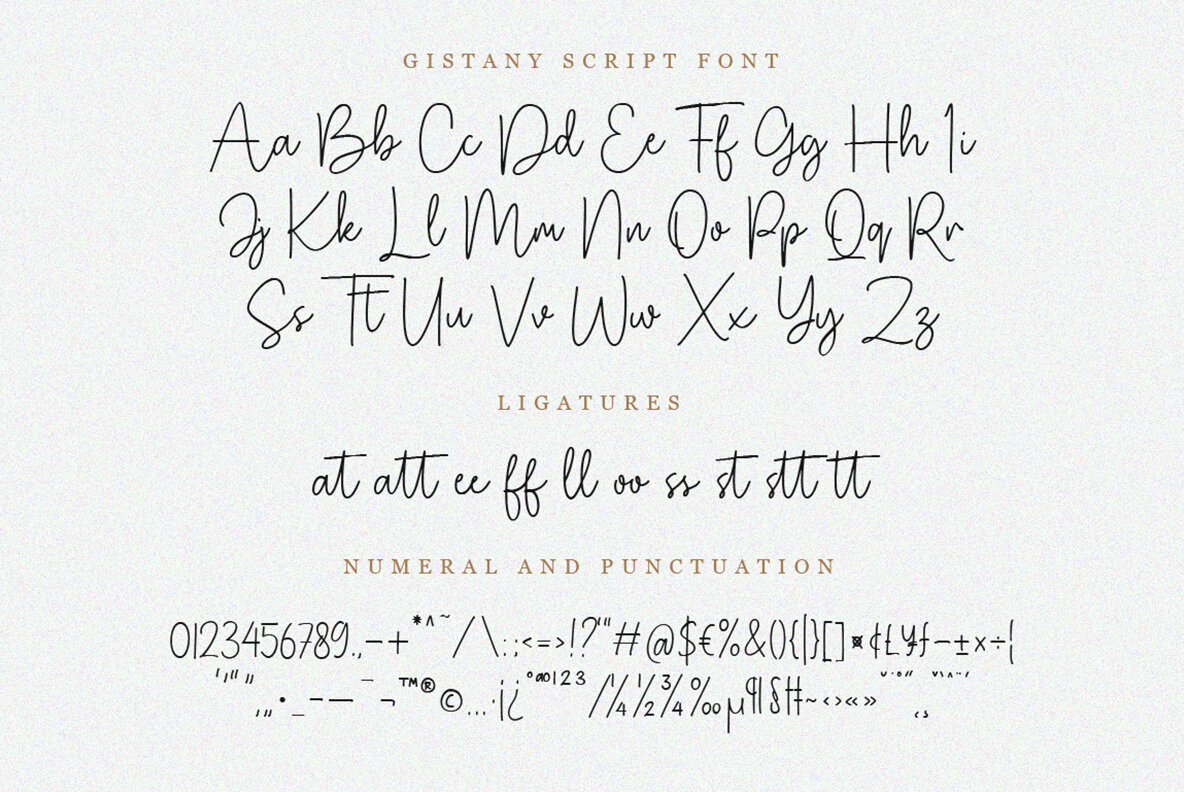 GISTANY SCRIPT FONT
Aa Bb Cc Dd Ee Ff Gg Hh Ii
Jj Kk Ll Mm Nn Oo Pp Qq Rr
Ss Tt Uu Vv Ww Xx Yy Zz
LIGATURES
at att ee ff ll oo ss st stt tt
NUMERAL AND PUNCTUATION
0123456789.,-+*^~/\:;<=>!?'"#@$€%&(){|}[]¤¢£¥ƒ−±×÷¦
‘’“”‚„•_–—¯¬™®©…·¡¿ºªº¹²³⁄¼½¾‰µ¶§‡~‹›«»